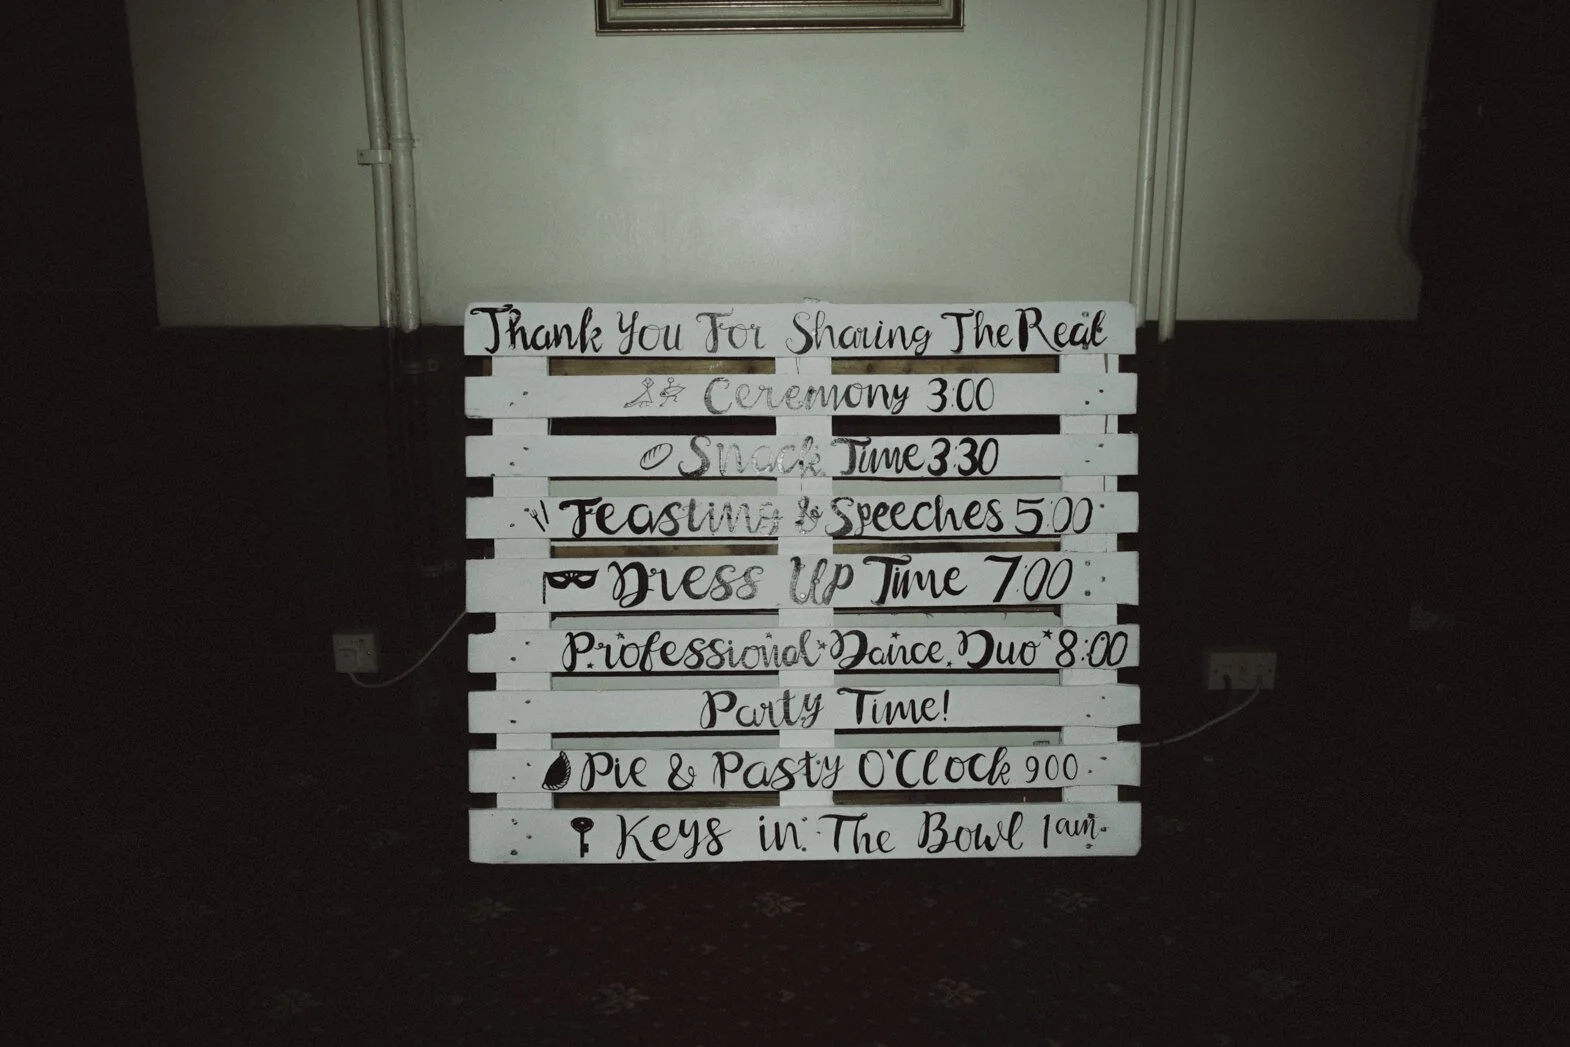 Thank You For Sharing The Real
Ceremony 3:00
Snack Time 3:30
Feasting & Speeches 5:00
Dress Up Time 7:00
Professional* Dance Duo* 8:00
Party Time!
Pie & Pasty O'Clock 900
Keys in The Bowl 1am